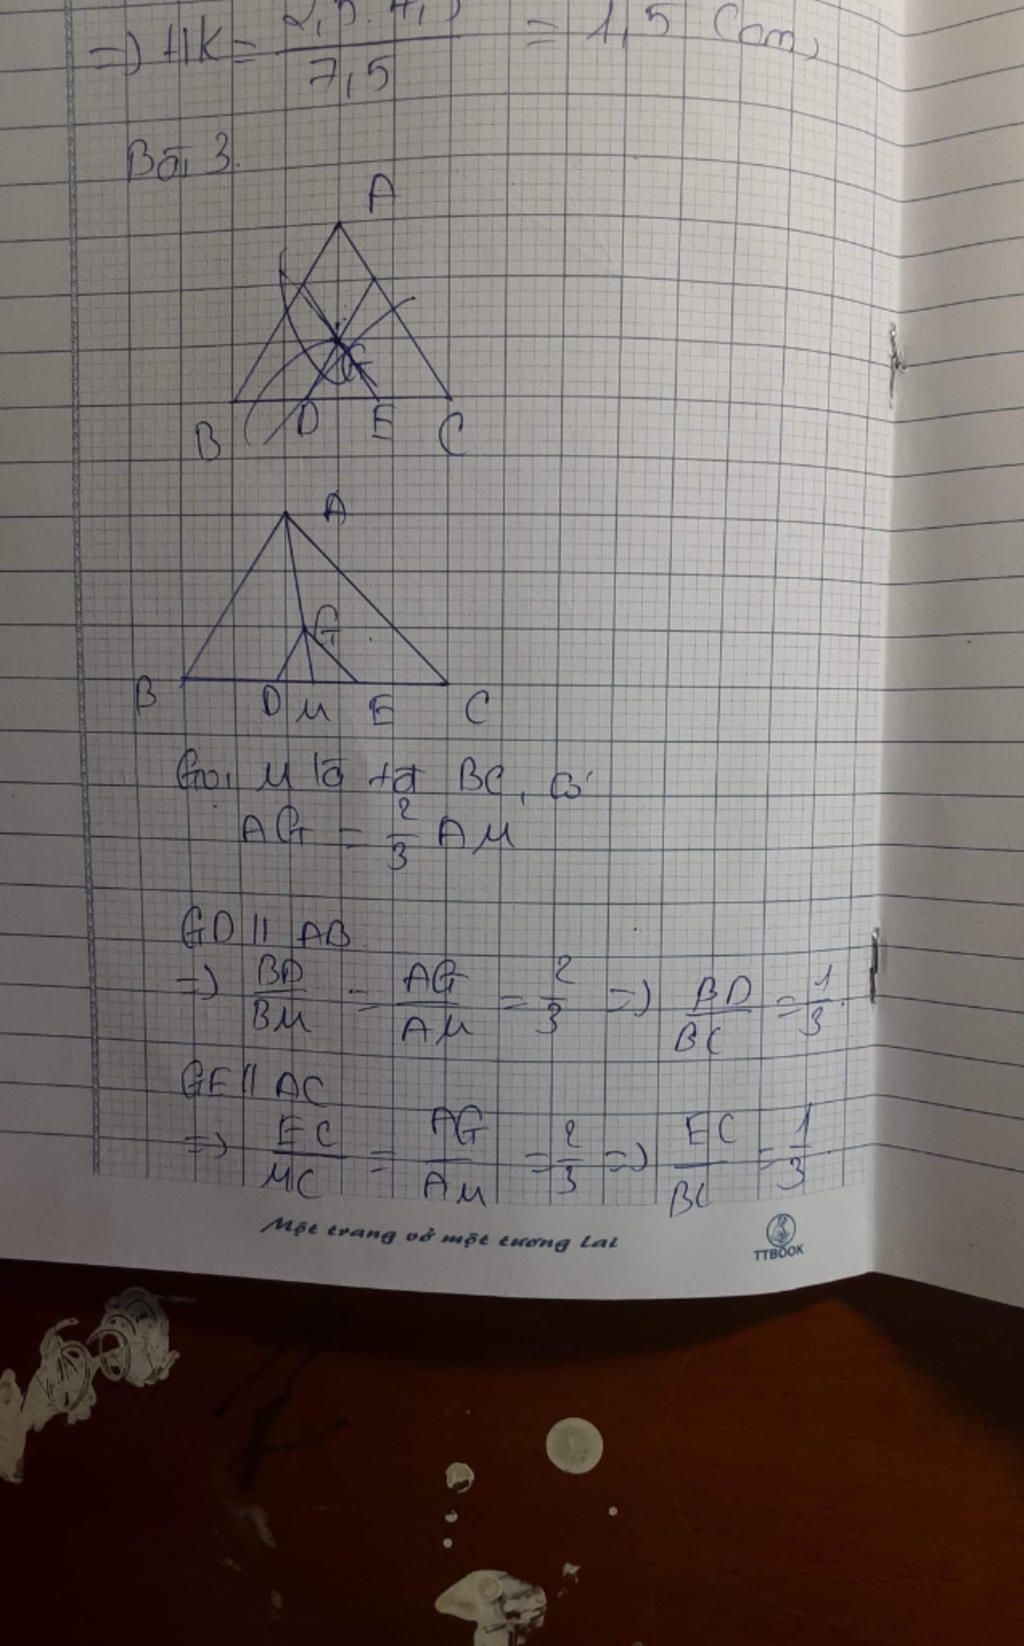 => HK = 2,5.4,5 / 7,5 = 1,5 (cm)
Bài 3.
A
G
B D E C
A
G
B D M E C
Gọi M là tđ BC, có
AG = 2/3 AM
GD // AB
=> BD/BM = AG/AM = 2/3 => BD/BC = 1/3.
GE // AC
=> EC/MC = AG/AM = 2/3 => EC/BC = 1/3
Một trang vở một tương lai
TTBOOK